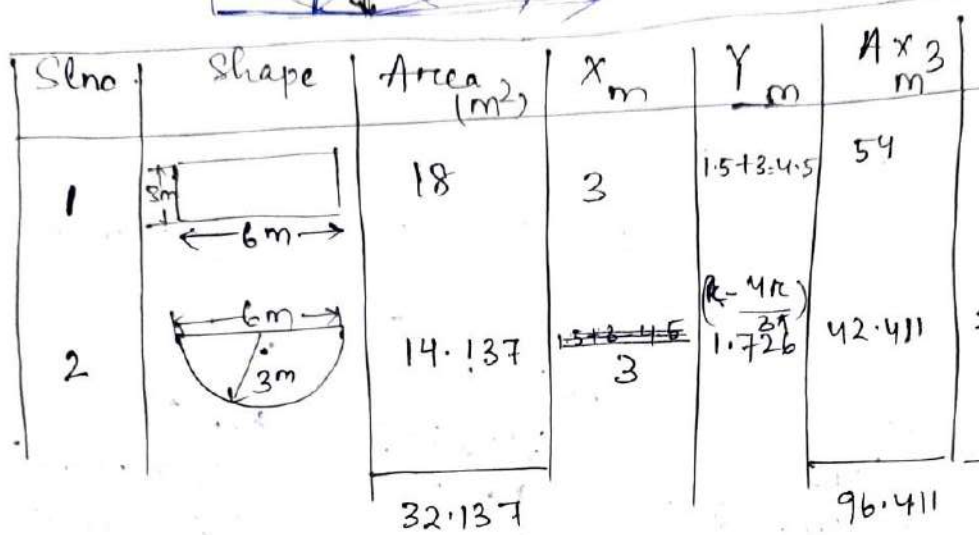 Slno. Shape Area (m²) X m Y m Ax m³
1 3m 6m 18 3 1.5+3=4.5 54
2 6m 3m 14.137 1.5+3=4.5 3 (R-4R/3π) 1.726 42.411
32.137 96.411